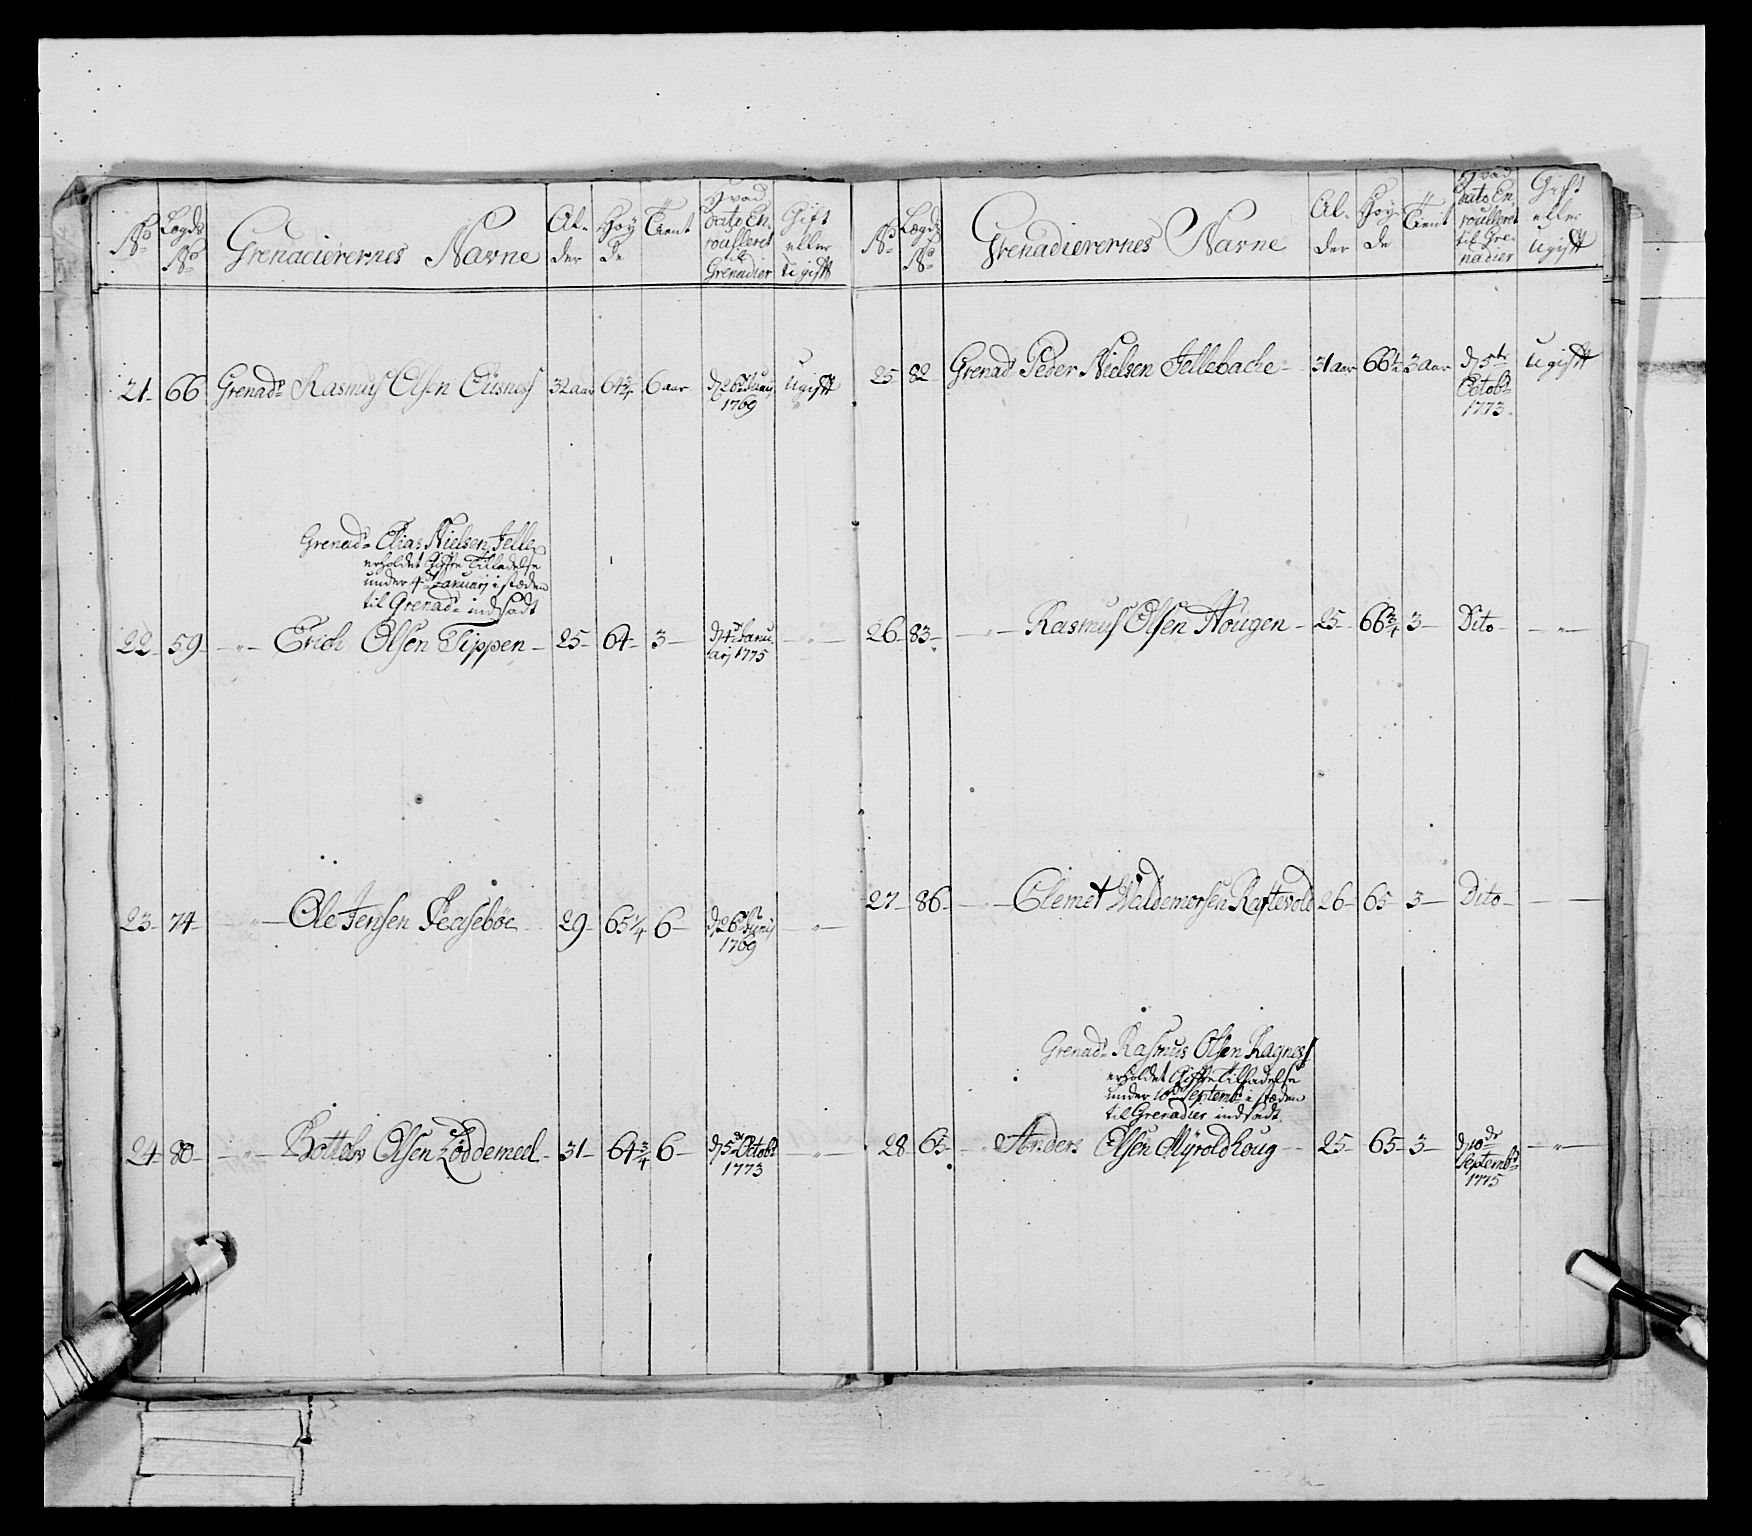 No Lægds No Grenadierernes Navne Al- der Høy de Tient Hvad dato En- roulleret til Grenadier Gift eller Ugift
21- 66 Grenadr Rasmus Olsen 32 aar 64 3/4 6 aar d 26 Junij 1769 Ugift
Grenadr Elias Nielsen Jelle
erholdet Giffte Tilladelse
under 4de Januarj i stæden
til Grenadr indsadt
22- 59- -"- Erich Olsen Tippen- 25- 64- 3- d 4de Janu- arj 1775 -"-
23- 74- -"- Ole Jensen 29- 65 1/4 6- d 26 Junij 1769 -"-
24- 80- -"- Olsen 31- 64 3/4 6- d 5te Octobr 1773 -"-
No Lægds No Grenadierernes Navne Al- der Høy- de Tient Hvad dato En- roulleret til Gre- nadier Gift eller Ugift
25- 82 Grenadr Peder Nielsen Jellebache- 31 aar 66 1/2 3 aar d 5te Octobr 1773. Ugift
26- 83- -"- Rasmus Olsen Hougen- 25- 66 3/4 3- Dito- -"-
27- 86- -"- Clemet Waldemorsen Raftevold 26- 65- 3- Dito- -
Grenadr Rasmus Olsen Ragness
erholdet Giffte Tilladelse
under 10de Septembr i stæden
til Grenadier indsadt
28 65- -"- Anders Olsen Myroldhoug- 25- 65- 3- d 10de Septembr 1775 -"-